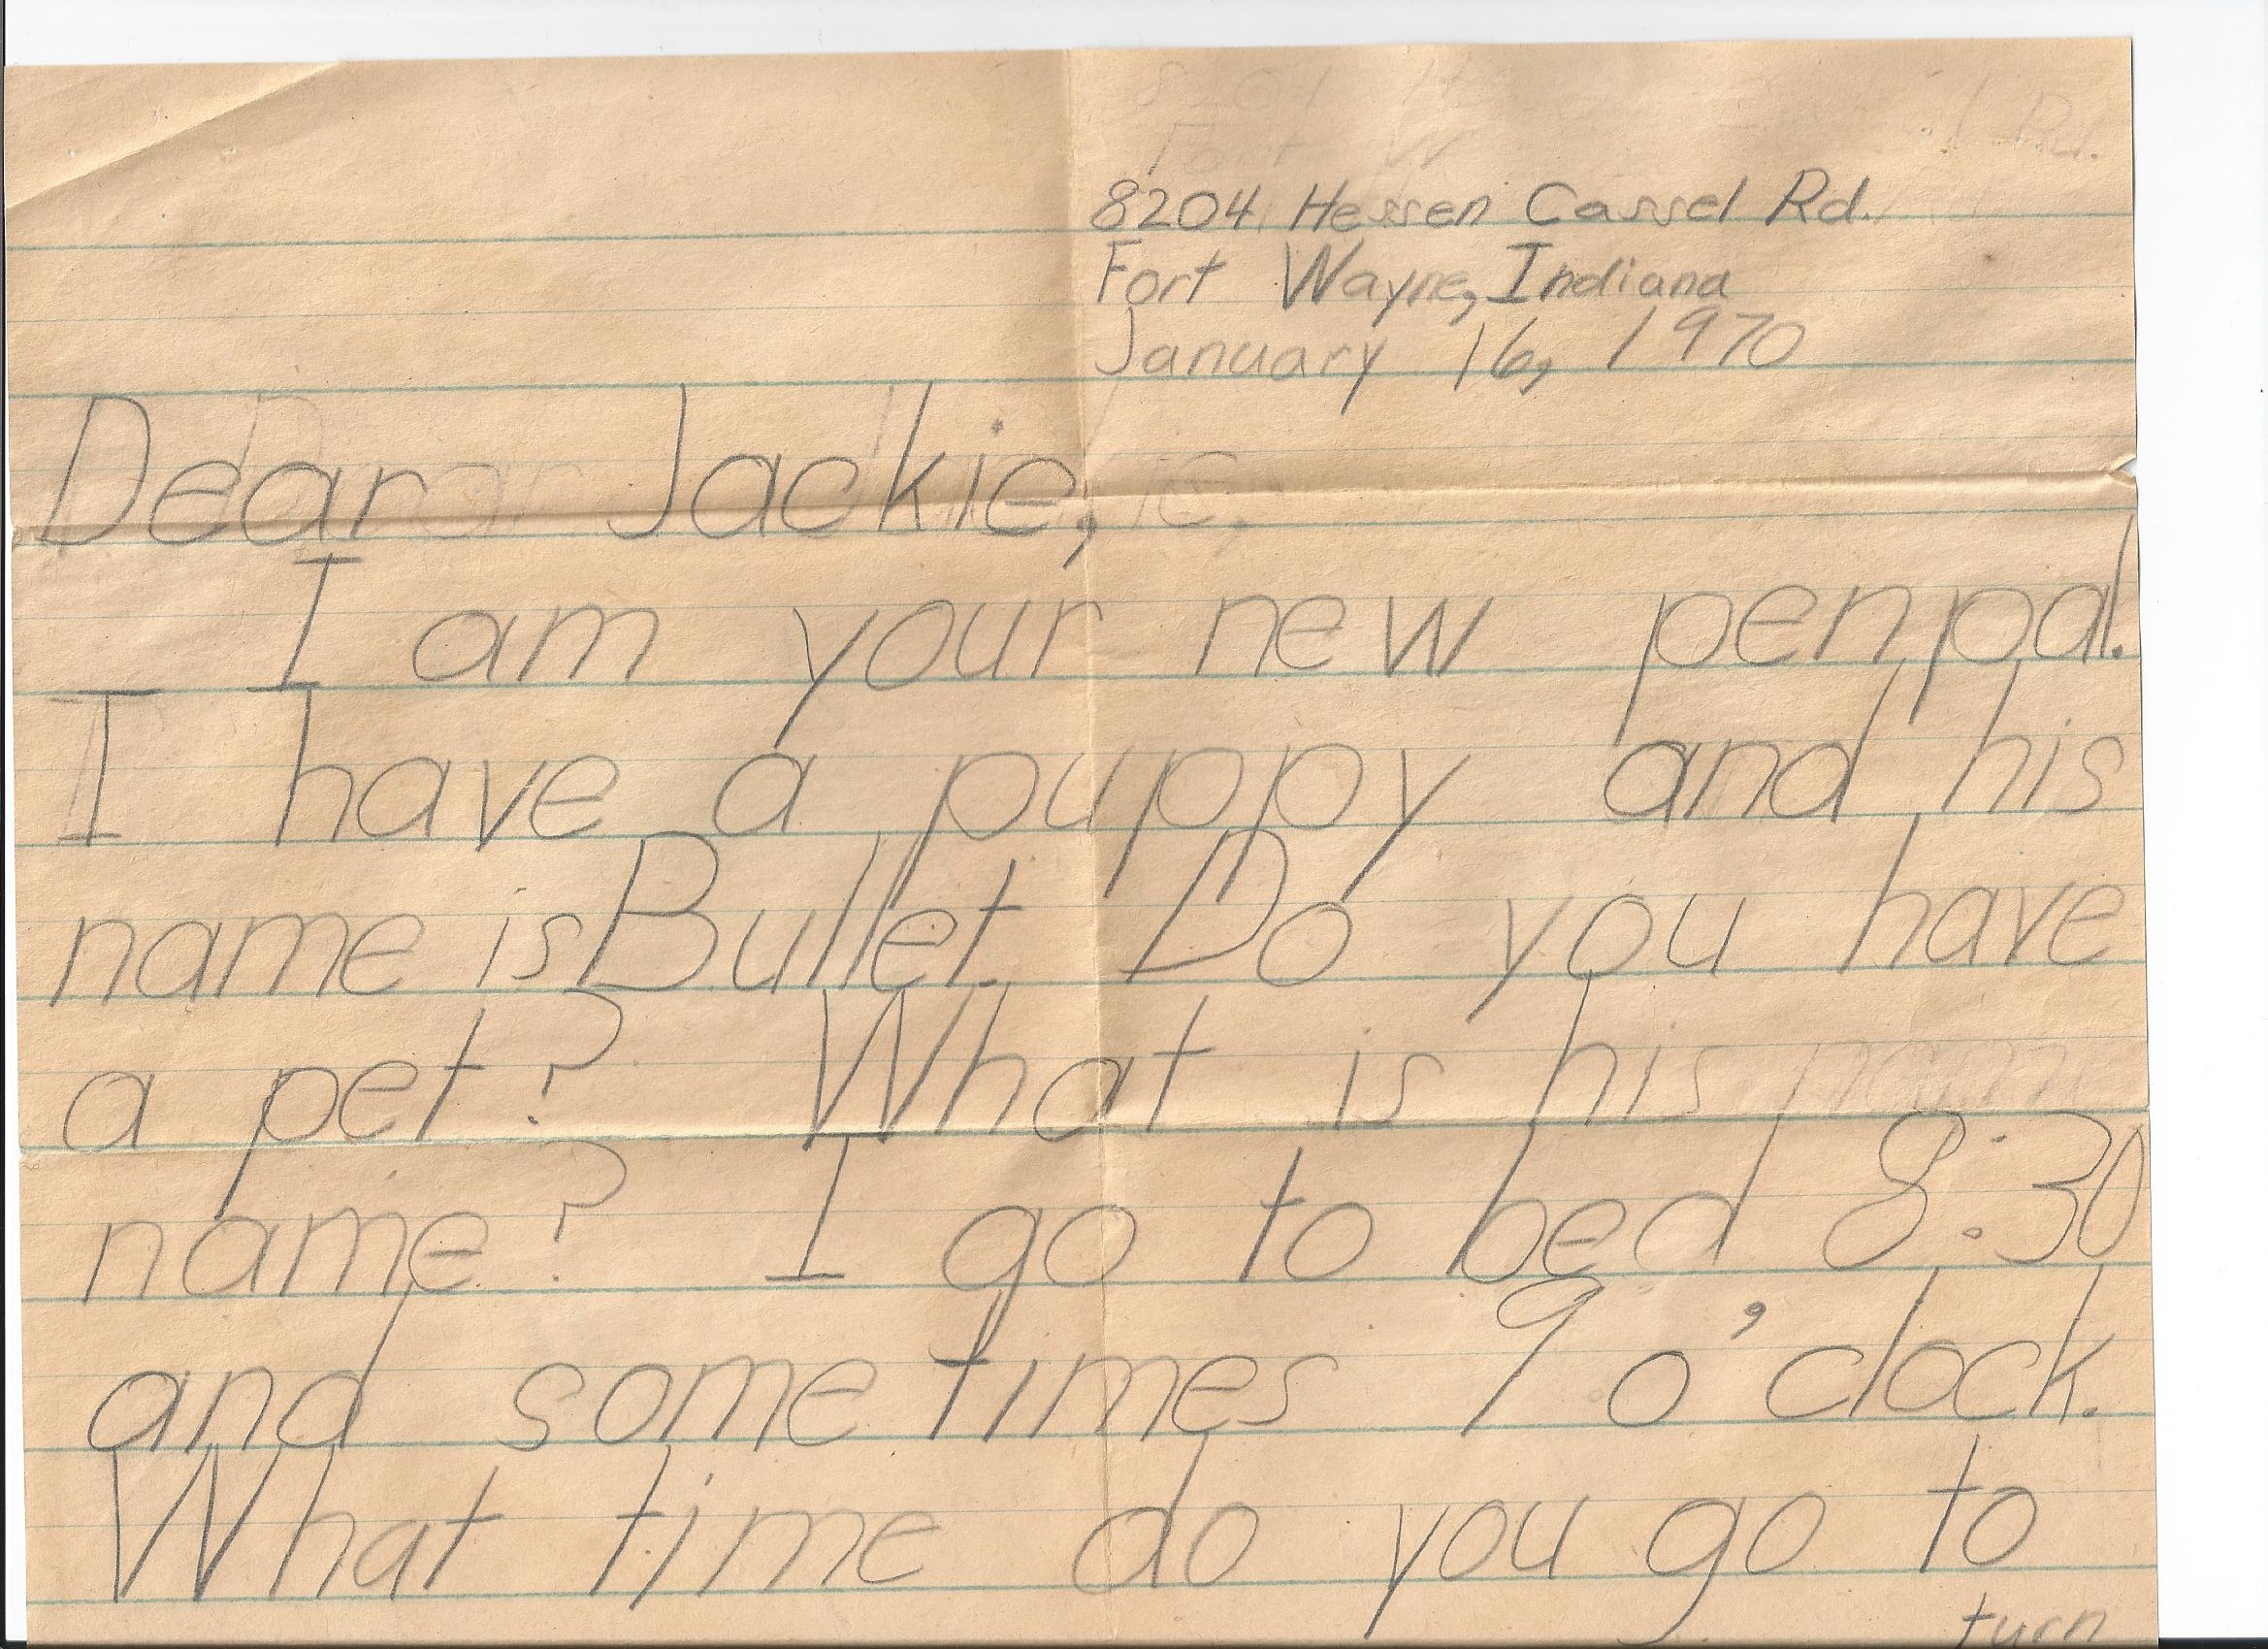 8204 Hessen Cassel Rd.
Fort Wayne, Indiana
January 16, 1970
Dear Jackie,
I am your new penpal.
I have a puppy and his
name is Bullet. Do you have
a pet? What is his
name? I go to bed 8:30
and sometimes 9 o'clock.
What time do you go to
turn